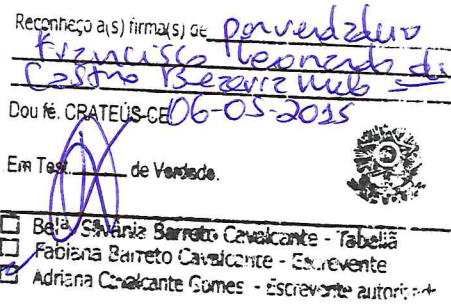 Reconheço a(s) firma(s) de por verdadeiro
Francisco Leonardo de
Castro Bezerra
Dou fé. CRATEÚS-CE 06-05-2015
Em Test. de Verdade.
Bela. Silvânia Barreto Cavalcante - Tabeliã
Fabiana Barreto Cavalcante - Escrevente
Adriana Cavalcante Gomes - Escrevente autorizada